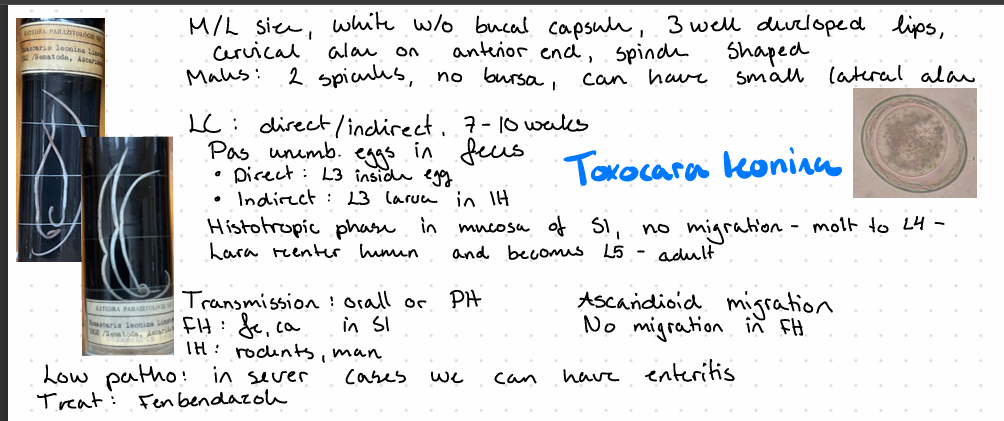 M/L size, white w/o bucal capsule, 3 well developed lips,
cervical alae on anterior end, spindle shaped
Males: 2 spicules, no bursa, can have small lateral alae
LC: direct/indirect, 7-10 weeks
Pas unemb. eggs in feces
• Direct: L3 inside egg
• Indirect: L3 larva in IH
Toxocara leonina
Histotropic phase in mucosa of SI, no migration - molt to L4 -
Lara reenter lumen and becomes L5 - adult
Transmission: orall or PH
FH: fe, ca in SI
IH: rodents, man
Ascaridioid migration
No migration in FH
Low patho: in sever cases we can have enteritis
Treat: Fenbendazole
KATEDRA PARAZITOLOGIE
ascaris leonina
/Nematoda, Ascari
KATEDRA PARAZITOLOGIE
ascaris leonina
/Nematoda, Ascari